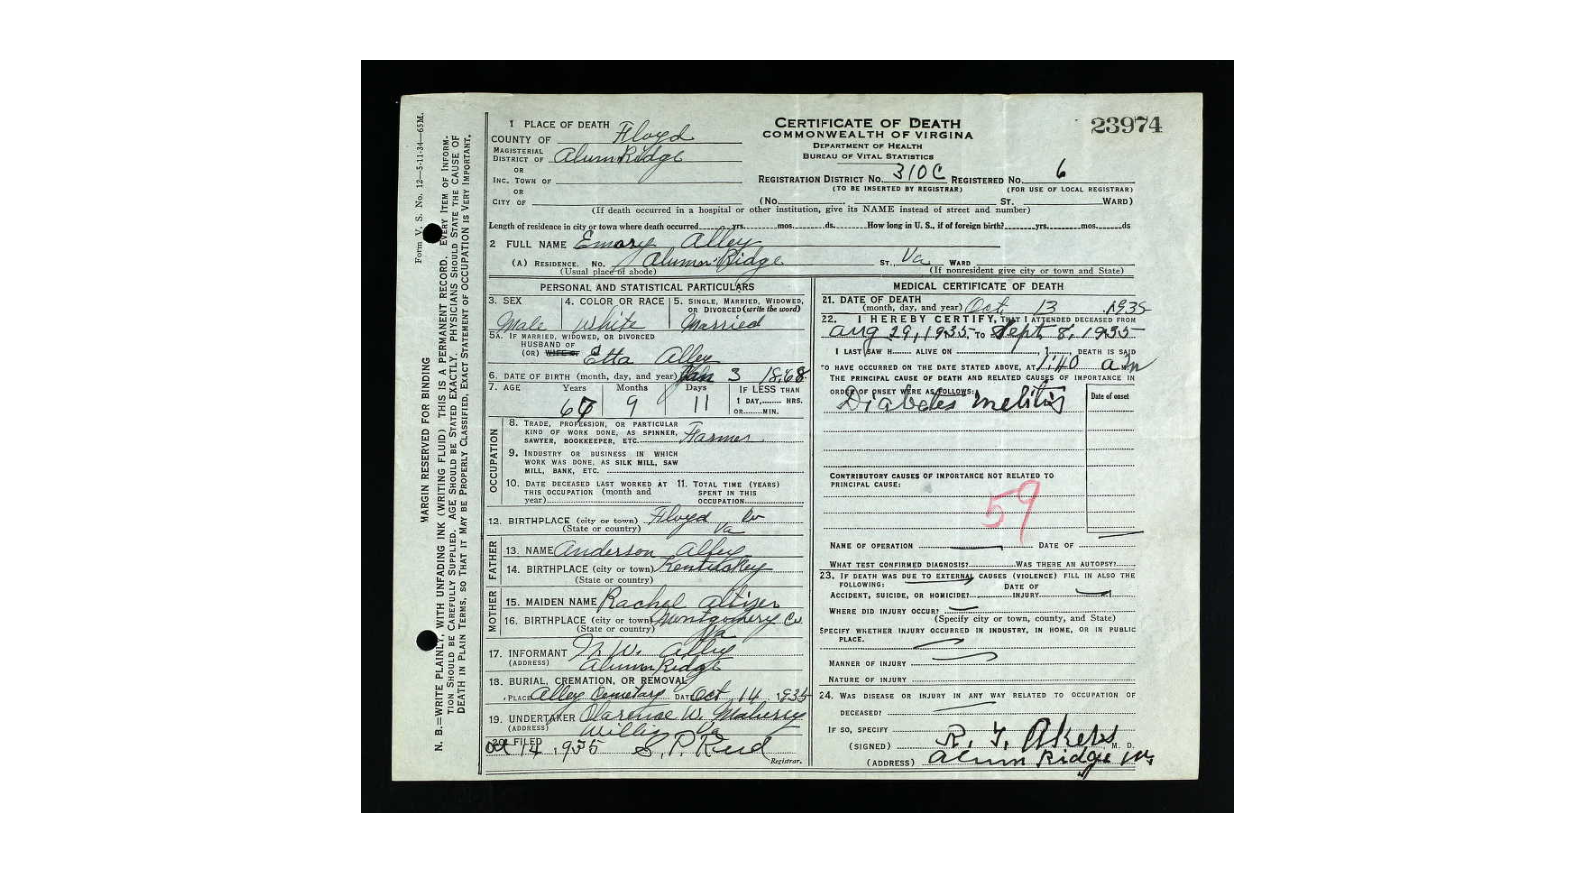 Form V. S. No. 12—5-11-34—65M.
MARGIN RESERVED FOR BINDING
N. B.—WRITE PLAINLY, WITH UNFADING INK (WRITING FLUID) THIS IS A PERMANENT RECORD. EVERY ITEM OF INFORM-
TION SHOULD BE CAREFULLY SUPPLIED. AGE SHOULD BE STATED EXACTLY. PHYSICIANS SHOULD STATE THE CAUSE OF
DEATH IN PLAIN TERMS, SO THAT IT MAY BE PROPERLY CLASSIFIED. EXACT STATEMENT OF OCCUPATION IS VERY IMPORTANT.
1 PLACE OF DEATH
COUNTY OF Floyd
MAGISTERIAL DISTRICT OF Alum Ridge
OR
INC. TOWN OF
OR
CITY OF
CERTIFICATE OF DEATH
COMMONWEALTH OF VIRGINIA
DEPARTMENT OF HEALTH
BUREAU OF VITAL STATISTICS
23974
REGISTRATION DISTRICT NO. 310C REGISTERED NO. 6
(TO BE INSERTED BY REGISTRAR) (FOR USE OF LOCAL REGISTRAR)
(No. ST. WARD)
(If death occurred in a hospital or other institution, give its NAME instead of street and number)
Length of residence in city or town where death occurred yrs. mos. ds. How long in U. S., if of foreign birth? yrs. mos. ds
2 FULL NAME Emory Alley
(A) RESIDENCE. No. Alum Ridge ST. Va WARD
(Usual place of abode) (If nonresident give city or town and State)
PERSONAL AND STATISTICAL PARTICULARS
3. SEX 4. COLOR OR RACE 5. SINGLE, MARRIED, WIDOWED, OR DIVORCED (write the word)
Male White Married
5A. IF MARRIED, WIDOWED, OR DIVORCED
HUSBAND OF
(OR) WIFE OF Etta Alley
6. DATE OF BIRTH (month, day, and year) Jan 3 1868
7. AGE Years Months Days IF LESS THAN
1 DAY, HRS.
OR MIN.
67 9 11
OCCUPATION
8. TRADE, PROFESSION, OR PARTICULAR
KIND OF WORK DONE, AS SPINNER,
SAWYER, BOOKKEEPER, ETC. Farmer
9. INDUSTRY OR BUSINESS IN WHICH
WORK WAS DONE, AS SILK MILL, SAW
MILL, BANK, ETC.
10. DATE DECEASED LAST WORKED AT THIS OCCUPATION (month and year)
11. TOTAL TIME (YEARS) SPENT IN THIS OCCUPATION
12. BIRTHPLACE (city or town) Floyd Co
(State or country) Va
FATHER
13. NAME Anderson Alley
14. BIRTHPLACE (city or town) Kentucky
(State or country)
MOTHER
15. MAIDEN NAME Rachel Altizer
16. BIRTHPLACE (city or town) Montgomery Co
(State or country) Va
17. INFORMANT W. Alley
(ADDRESS) Alum Ridge
18. BURIAL, CREMATION, OR REMOVAL
PLACE Alley Cemetary DATE Oct 14 1935
19. UNDERTAKER Clarence W. Maberry
(ADDRESS) Willis Va
20. FILED Oct 14, 1935 S. P. Reed
Registrar.
MEDICAL CERTIFICATE OF DEATH
21. DATE OF DEATH
(month, day, and year) Oct 13 1935
22. I HEREBY CERTIFY, THAT I ATTENDED DECEASED FROM
Aug 29, 1935 TO Sept 8, 1935
I LAST SAW H ALIVE ON , 1 DEATH IS SAID
TO HAVE OCCURRED ON THE DATE STATED ABOVE, AT 1:40 a M
THE PRINCIPAL CAUSE OF DEATH AND RELATED CAUSES OF IMPORTANCE IN
ORDER OF ONSET WERE AS FOLLOWS: Date of onset
Diabetes melitis
CONTRIBUTORY CAUSES OF IMPORTANCE NOT RELATED TO
PRINCIPAL CAUSE:
59
NAME OF OPERATION DATE OF
WHAT TEST CONFIRMED DIAGNOSIS? WAS THERE AN AUTOPSY?
23. IF DEATH WAS DUE TO EXTERNAL CAUSES (VIOLENCE) FILL IN ALSO THE
FOLLOWING:
ACCIDENT, SUICIDE, OR HOMICIDE? DATE OF INJURY
WHERE DID INJURY OCCUR?
(Specify city or town, county, and State)
SPECIFY WHETHER INJURY OCCURRED IN INDUSTRY, IN HOME, OR IN PUBLIC
PLACE.
MANNER OF INJURY
NATURE OF INJURY
24. WAS DISEASE OR INJURY IN ANY WAY RELATED TO OCCUPATION OF
DECEASED?
IF SO, SPECIFY
(SIGNED) R. T. Akers M. D.
(ADDRESS) Alum Ridge Va.